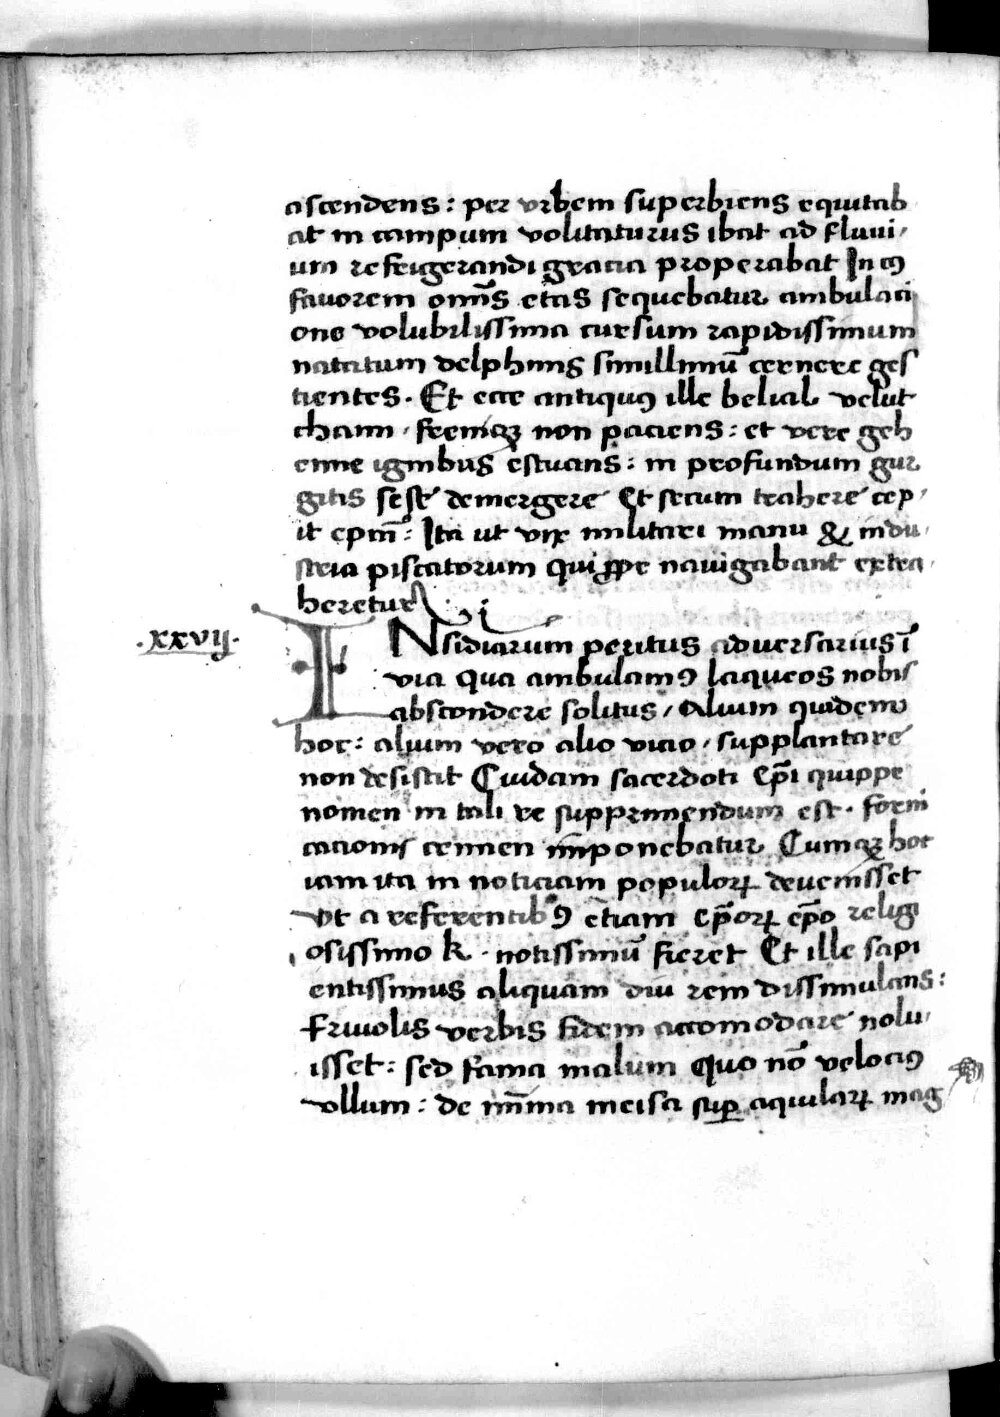 ascendens : per urbem superbiens equitab
at in campum volitaturus ibat ad fluui,
um refrigerandi gracia properabat In cꝰ
favorem om̄s etas sequebatur ambulaci
one volubilissima cursum rapidissimum
natatum delphinis simillimū cernere ges
tientes . Et ecce antiquꝰ ille belial velut
cham , freniqꝫ non paciens : et vere geh
enne ignibus estuans : in profundum gur
gitis sese demergere Et secum trahere cep,
it ep̄m : Ita ut vix militari manu & indu,
stria piscatorum qui ꝓpe navigabant extra,
heretur
.xxvij.
INsidiarum peritus adversarius ī
via qua ambulamꝰ laqueos nobis
abscondere solitus , Alium quidem
hoc : alium vero alio vicio , supplantare
non desistit Cuidam sacerdoti cp̄i quippe
nomen in tali re supprimendum est . forni
cacionis crimen imponebatur Cumqꝫ hoc
iam ita in noticiam populoꝝ devenisset
Vt a referentibꝰ etiam ep̄oꝝ ep̄o religi
osissimo k . notissimū fieret Et ille sapi
entissimus aliquam diu rem dissimulans :
Frivolis verbis fidem accomodare nolu,
isset : sed fama malum quo nō velociꝰ
vllum : de nim̄ia incisa suꝑ aquilaꝝ mag